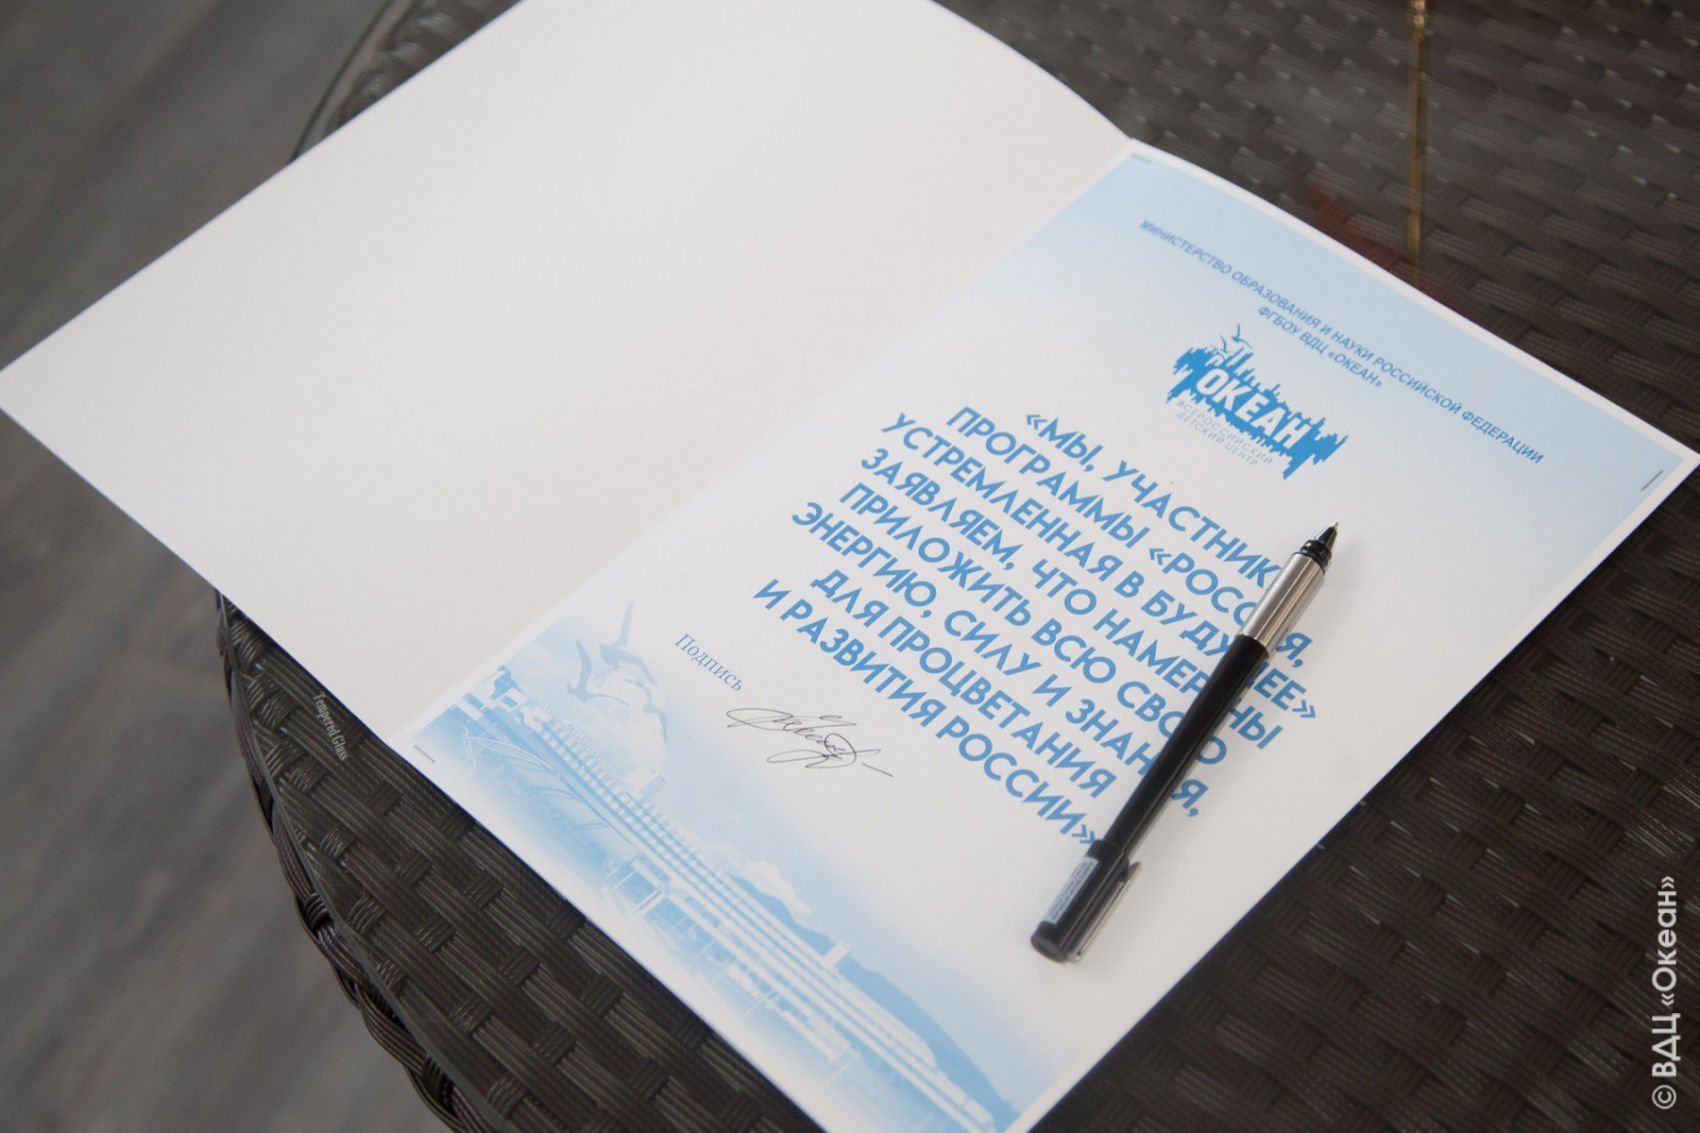 МИНИСТЕРСТВО ОБРАЗОВАНИЯ И НАУКИ РОССИЙСКОЙ ФЕДЕРАЦИИ
ФГБОУ ВДЦ «ОКЕАН»
ОКЕАН
ВСЕРОССИЙСКИЙ
ДЕТСКИЙ ЦЕНТР
«МЫ, УЧАСТНИК
ПРОГРАММЫ «РОССИЯ,
УСТРЕМЛЕННАЯ В БУДУЩЕЕ»
ЗАЯВЛЯЕМ, ЧТО НАМЕРЕНЫ
ПРИЛОЖИТЬ ВСЮ СВОЮ
ЭНЕРГИЮ, СИЛУ И ЗНАНИЯ,
ДЛЯ ПРОЦВЕТАНИЯ
И РАЗВИТИЯ РОССИИ»
Подпись
Tempered Glass
© ВДЦ «Океан»